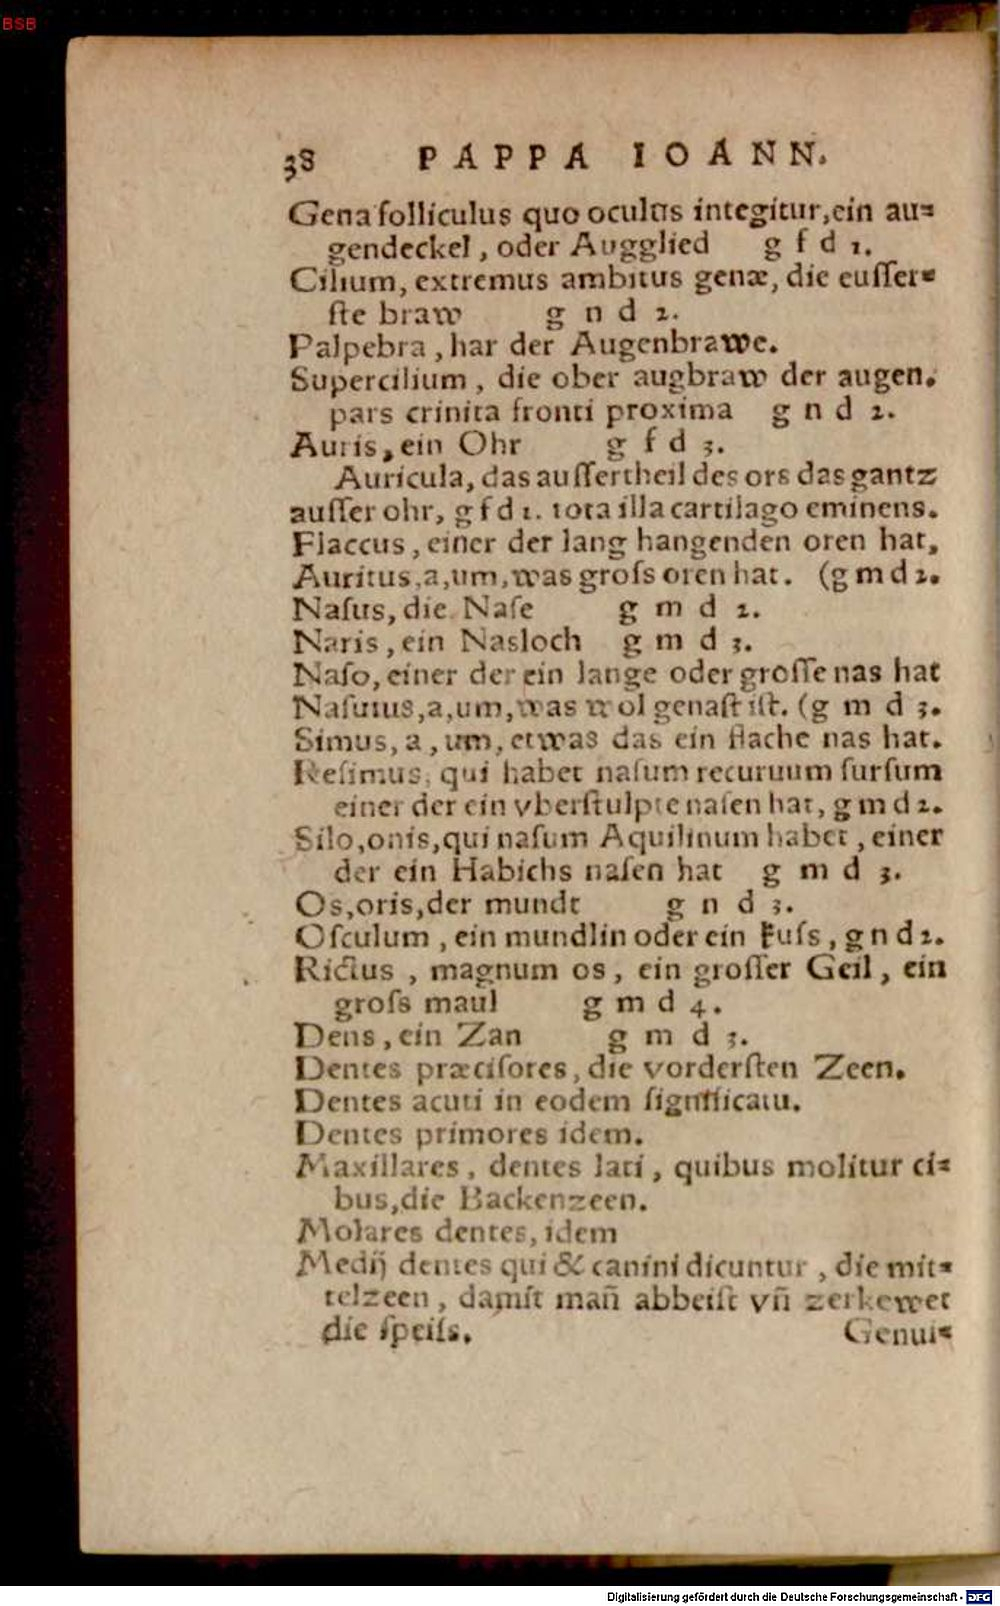 BSB
38 PAPPA IOANN.
Gena folliculus quo oculus integitur, ein au⸗
gendeckel, oder Augglied g f d 1.
Cilium, extremus ambitus genæ, die euſſer⸗
ſte braw g n d 2.
Palpebra, har der Augenbrawe.
Supercilium, die ober augbraw der augen.
pars crinita fronti proxima g n d 2.
Auris, ein Ohr g f d 3.
Auricula, das auſſertheil des ors das gantz
auſſer ohr, g f d 1. tota illa cartilago eminens.
Flaccus, einer der lang hangenden oren hat,
Auritus, a, um, was groſs oren hat. (g m d 2.
Naſus, die Naſe g m d 2.
Naris, ein Nasloch g m d 3.
Naſo, einer der ein lange oder groſſe nas hat
Naſutus, a, um, was wol genaſt iſt. (g m d 3.
Simus, a, um, etwas das ein flache nas hat.
Reſimus, qui habet naſum recuruum ſurſum
einer der ein vberſtulpte naſen hat, g m d 2.
Silo, onis, qui naſum Aquilinum habet, einer
der ein Habichs naſen hat g m d 3.
Os, oris, der mundt g n d 3.
Oſculum, ein mundlin oder ein kuſs, g n d 2.
Rictus, magnum os, ein groſſer Geil, ein
groſs maul g m d 4.
Dens, ein Zan g m d 3.
Dentes præciſores, die vorderſten Zeen.
Dentes acuti in eodem ſignificatu.
Dentes primores idem.
Maxillares, dentes lati, quibus molitur ci⸗
bus, die Backenzeen.
Molares dentes, idem
Medij dentes qui & canini dicuntur, die mit⸗
telzeen, damit mañ abbeiſt vñ zerkewet
die ſpeiſs. Genui⸗
Digitalisierung gefördert durch die Deutsche Forschungsgemeinschaft - DFG